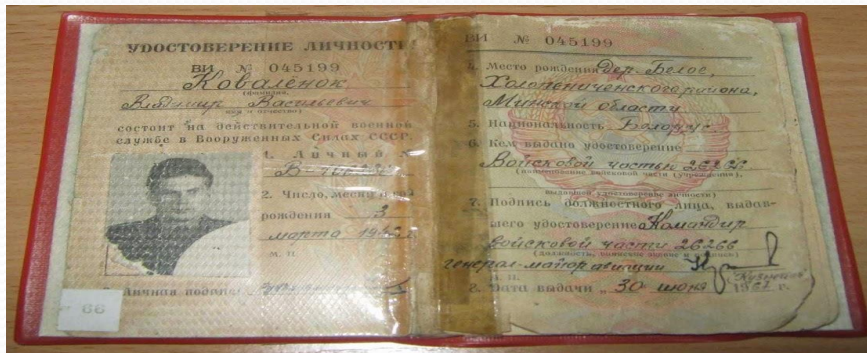 УДОСТОВЕРЕНИЕ ЛИЧНОСТИ
ВИ № 045199
Ковалёнок
(фамилия,
Владимир Васильевич
имя и отчество)
состоит на действительной военной
службе в Вооруженных Силах СССР.
1. Личный №
В-
2. Число, месяц и год
рождения 3
марта 1942 г.
М. П.
Личная подпись
66
ВИ № 045199
4. Место рождения Дер. Белое,
Холопниченского района,
Минской области
5. Национальность Белорус
6. Кем выдано удостоверение
Войсковой частью 26266
(наименование войсковой части (учреждения),
выдавшей удостоверение личности)
7. Подпись должностного лица, выдав-
шего удостоверение Командир
войсковой части 26266
(должность, воинское звание и подпись)
генерал-майор авиации
М. П.
8. Дата выдачи „ 30 июня 19 г.